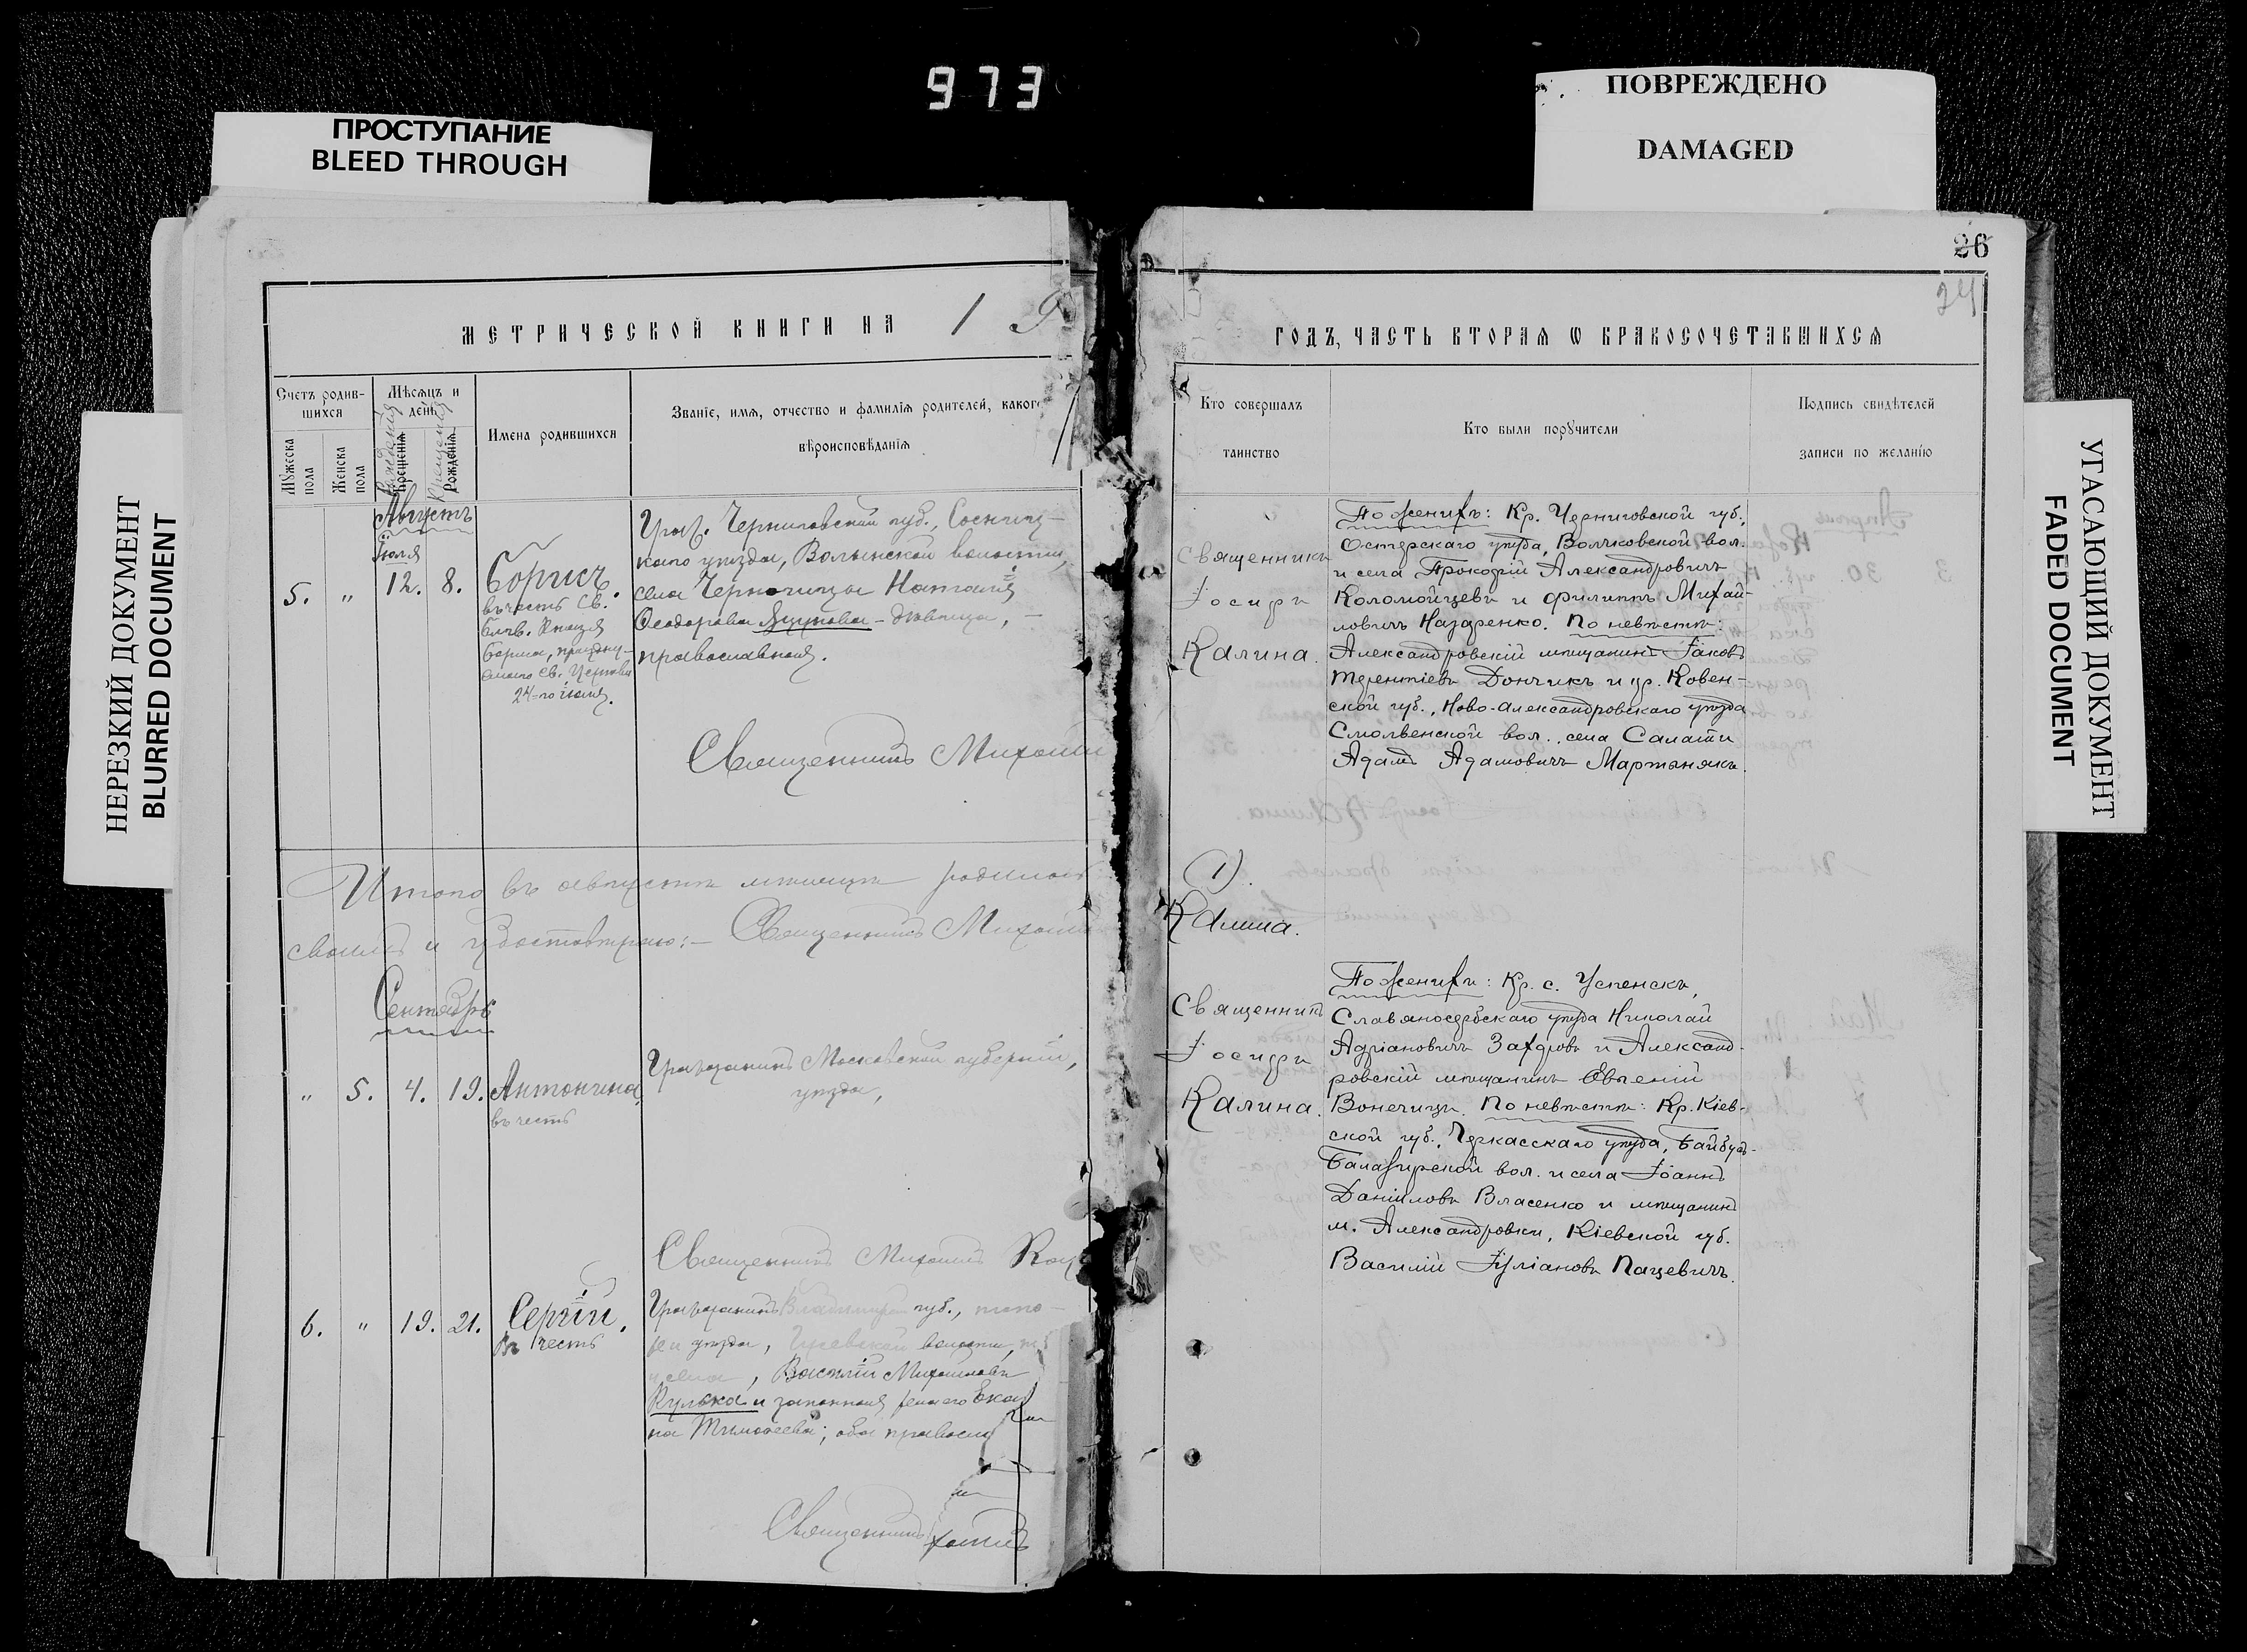 973
ПРОСТУПАНИЕ
BLEED THROUGH
ПОВРЕЖДЕНО
DAMAGED
НЕРЕЗКИЙ ДОКУМЕНТ
BLURRED DOCUMENT
УГАСАЮЩИЙ ДОКУМЕНТ
FADED DOCUMENT
МЕТРИЧЕСКОЙ КНИГИ НА 1 9
Счетъ родив-
шихся
Мѣсяцъ и
день
Мꙋжеска пола
Женска пола
Крещенія
Рожденія
Рожденія
Крещенія
Имена родившихся
Званіе, имя, отчество и фамилія родителей, какого
вѣроисповѣданія
Августъ
Іюля
5. „ 12. 8. Борисъ.
въ честь Св.
Блгв. Князя
Бориса, праздну-
24-го іюля.
Граж. Черниговской губ., Сосниц-
каго уѣзда, Волынской волости,
села Черногицы Наталія
Ѳеодорова – дѣвица, –
православная.
Священникъ Михаилъ
Итого въ августѣ мѣсяцѣ родилось
и удостовѣряю:– Священникъ Михаилъ
Сентябрь
„ 5. 4. 19. Антонина
въ честь
Гражданинъ Московской губерніи,
уѣзда,
Священникъ Михаилъ
6. „ 19. 21. Сергій.
въ честь
Гражданинъ Владимірской губ.,
уѣзда, Гусевской волости,
села, Василій Михаиловъ
Кулька и законная жена его Ека
на Тимоѳеева; оба правосла
Священникъ
26
24
ГОДЪ, ЧАСТЬ ВТОРАЯ Ѡ БРАКОСОЧЕТАВШИХСЯ
Кто совершалъ
таинство
Кто были порꙋчители
Подпись свидѣтелей
записи по желанію
Священникъ
Іосифъ
Калина.
По женихѣ: Кр. Черниговской губ.,
Остерскаго уѣзда, Волчковской вол.
и села Прокофій Александровичъ
Коломойцевъ и Филиппъ Михай-
ловичъ Назаренко. По невѣстѣ:
Александровскій мѣщанинъ Іаковъ
Терентіевъ Дончикъ и гр. Ковен-
ской губ., Ново-Александровскаго уѣзда
Смольвенской вол., села Салати
Адамъ Адамовичъ Мартынякъ.
1).
Калина.
Священникъ
Іосифъ
Калина.
По женихѣ: Кр. с. Успенска,
Славяносербскаго уѣзда Николай
Адріановичъ Захаровъ и Александ-
ровскій мѣщанинъ Евгеній
Вонечицъ. По невѣстѣ: Кр. Кіев-
ской губ., Черкасскаго уѣзда, Байбузъ-
вол. и села Іоаннъ
Даніиловъ Власенко и мѣщанинъ
м. Александровки, Кіевской губ.
Василій Іуліановъ Пацевичъ.